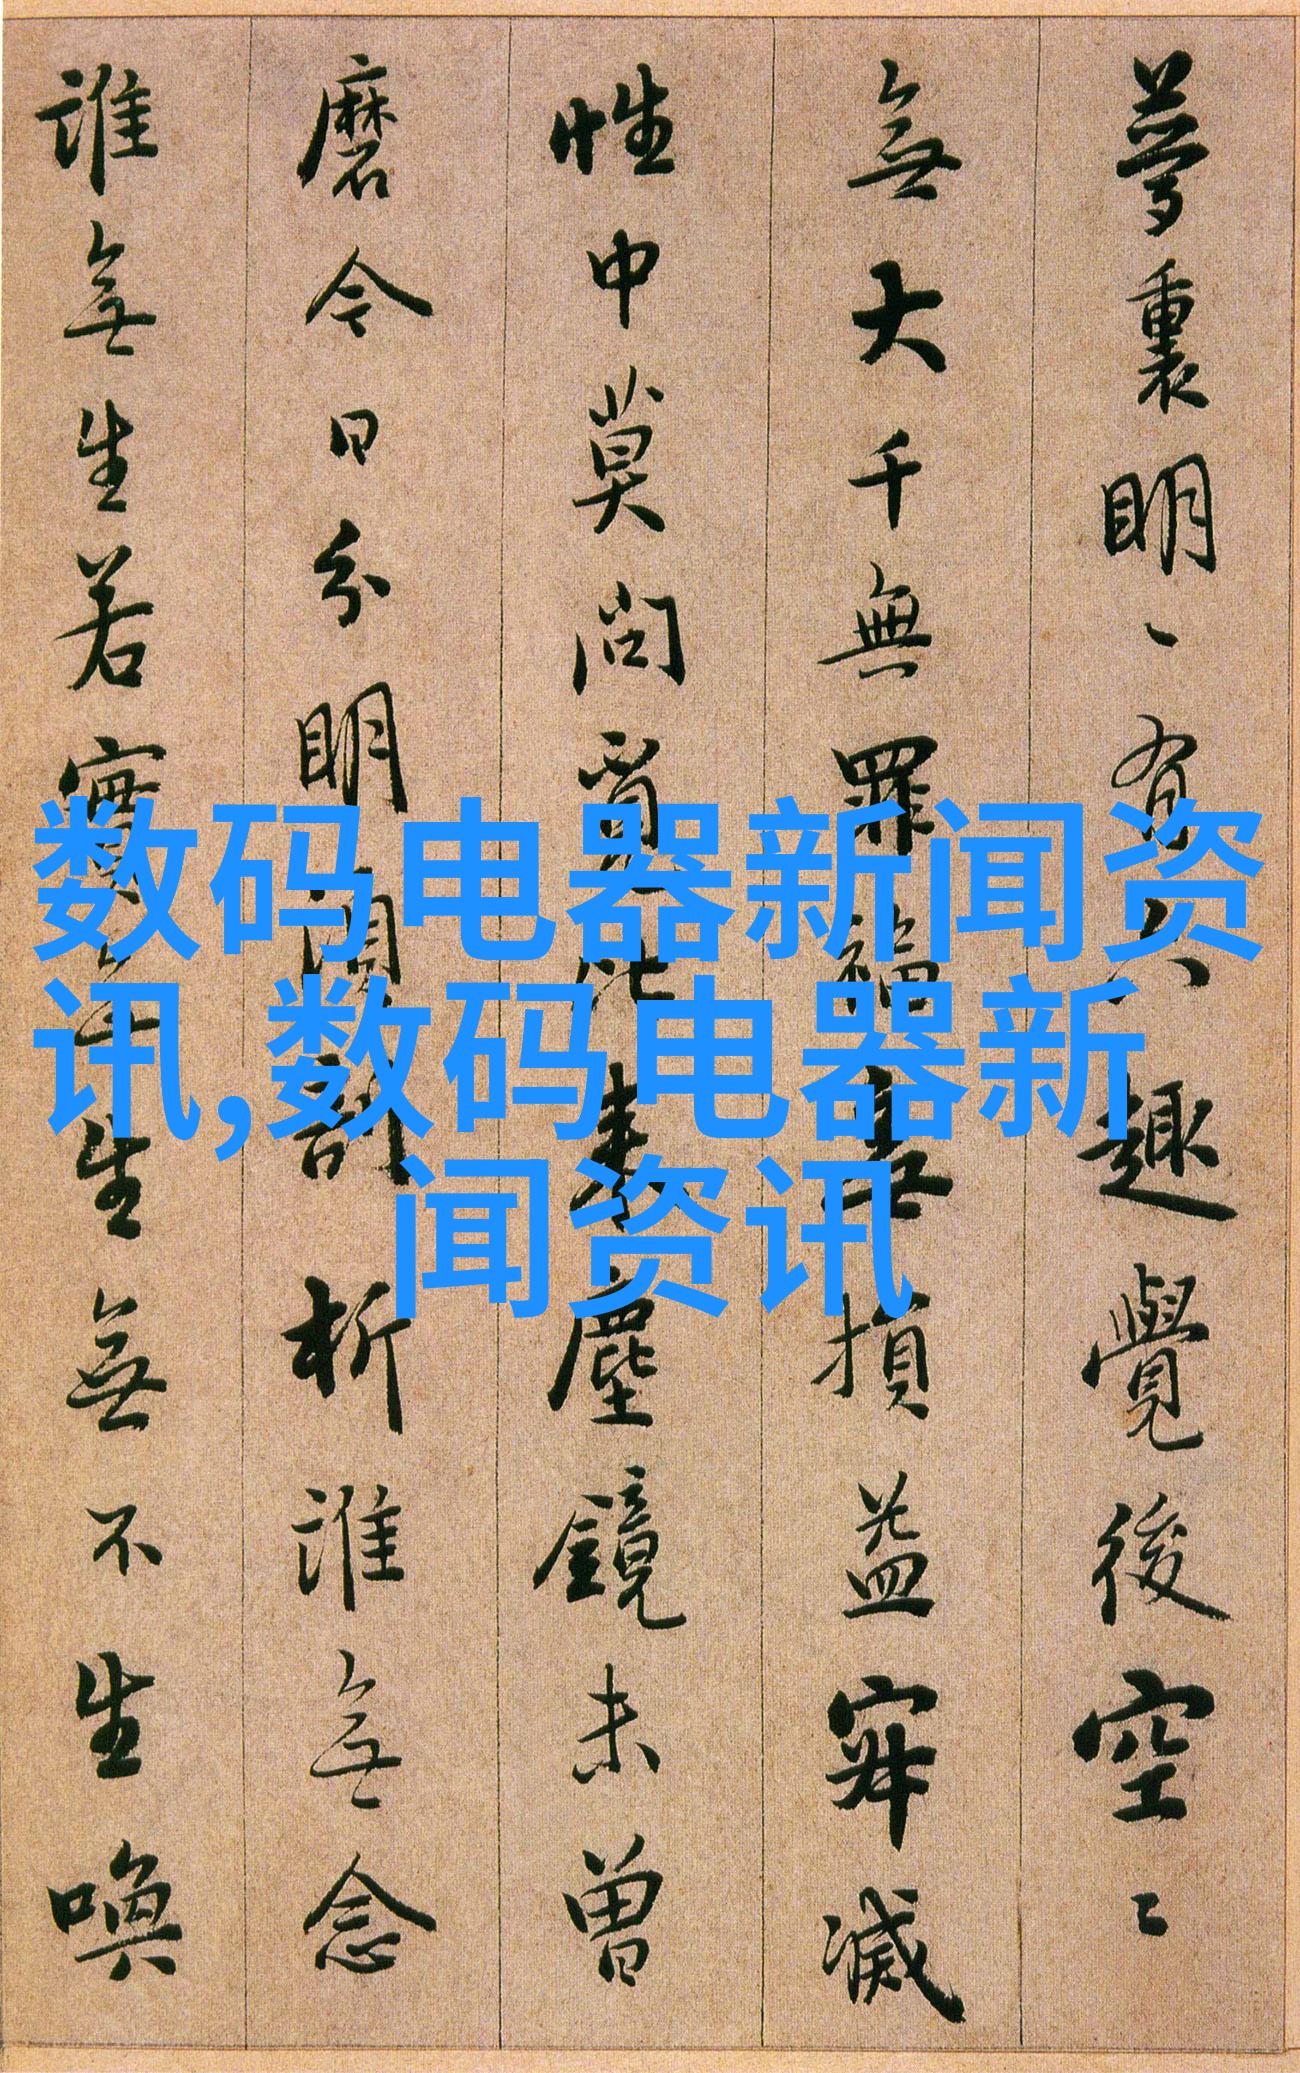 夢裏明〻有六趣覺後空〻
無大千無罪福無損益寂滅
性中莫問覓比来塵鏡未曾
磨今日分明須剖析誰無念
誰無生若實無生無不生喚
数码电器新闻资
讯,数码电器新
闻资讯